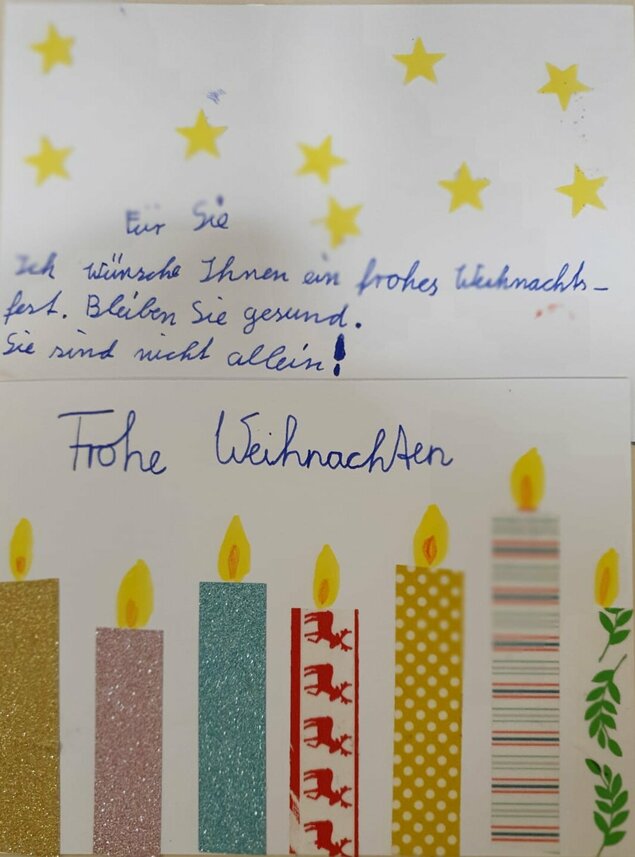 Für Sie
Ich wünsche Ihnen ein frohes Weihnachts-
fest. Bleiben Sie gesund.
Sie sind nicht allein!
Frohe Weihnachten